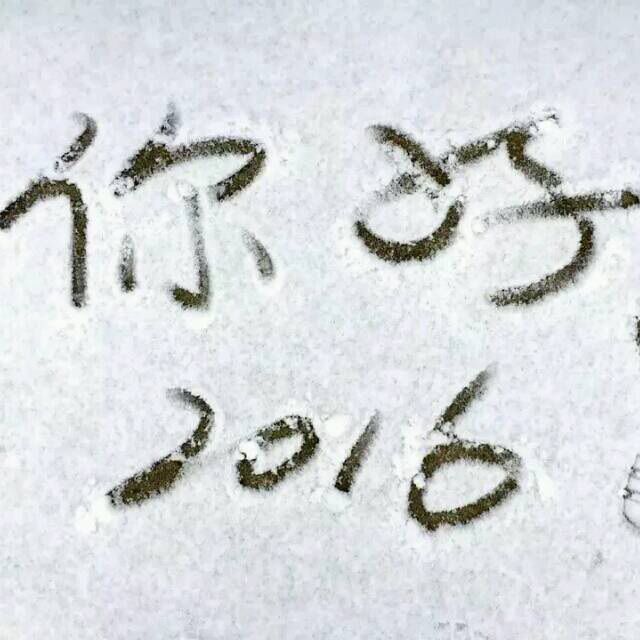 你好
2016